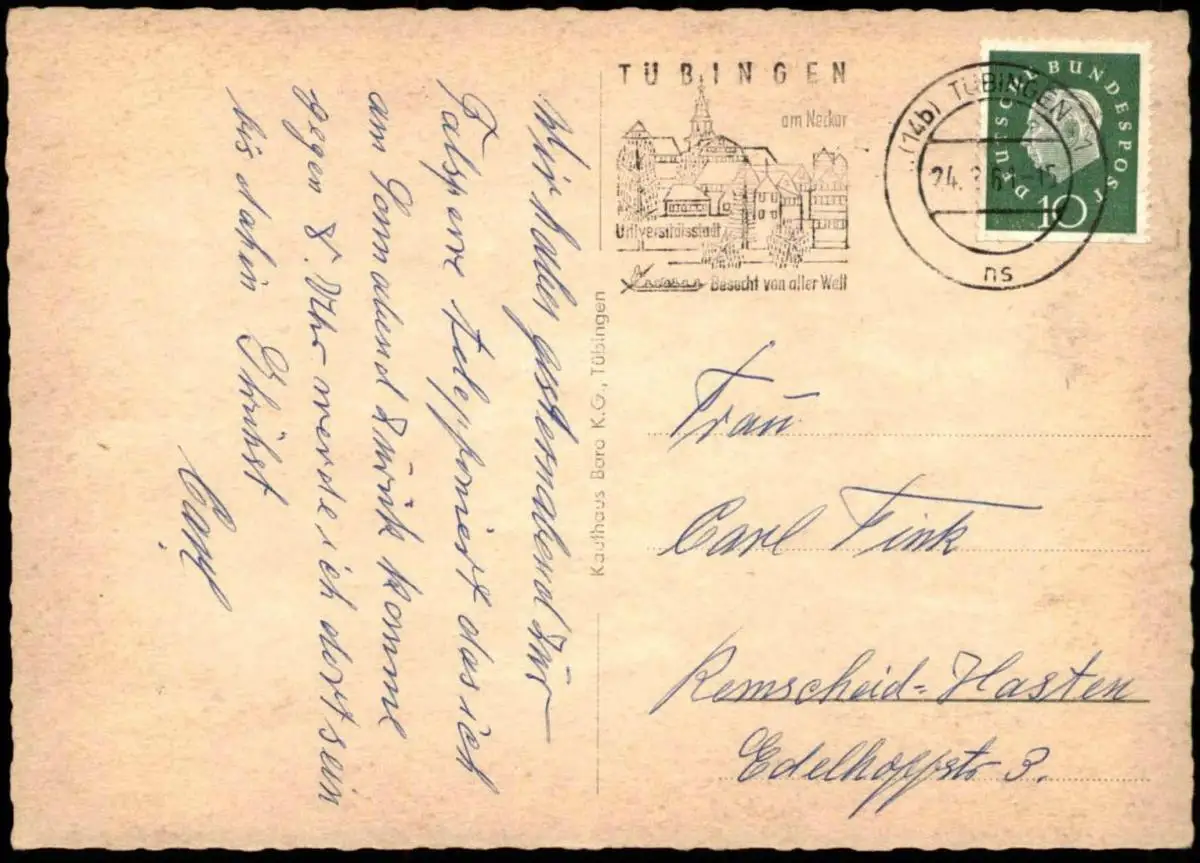 Wir haben gesternabend zur
Talsperre telefoniert das ich
am Sonnabend zurück komme
gegen 8. Uhr werde ich dort sein
bis dahin Grüßt
Carl
Kaufhaus Baro K.G., Tübingen
TÜBINGEN
am Neckar
Universitätsstadt
Besucht von aller Welt
(14b) TÜBINGEN 1
24. 61-15
ns
DEUTSCHE BUNDESPOST
10
Frau
Carl Fink
Remscheid-Hasten
Edelhoffstr 3.